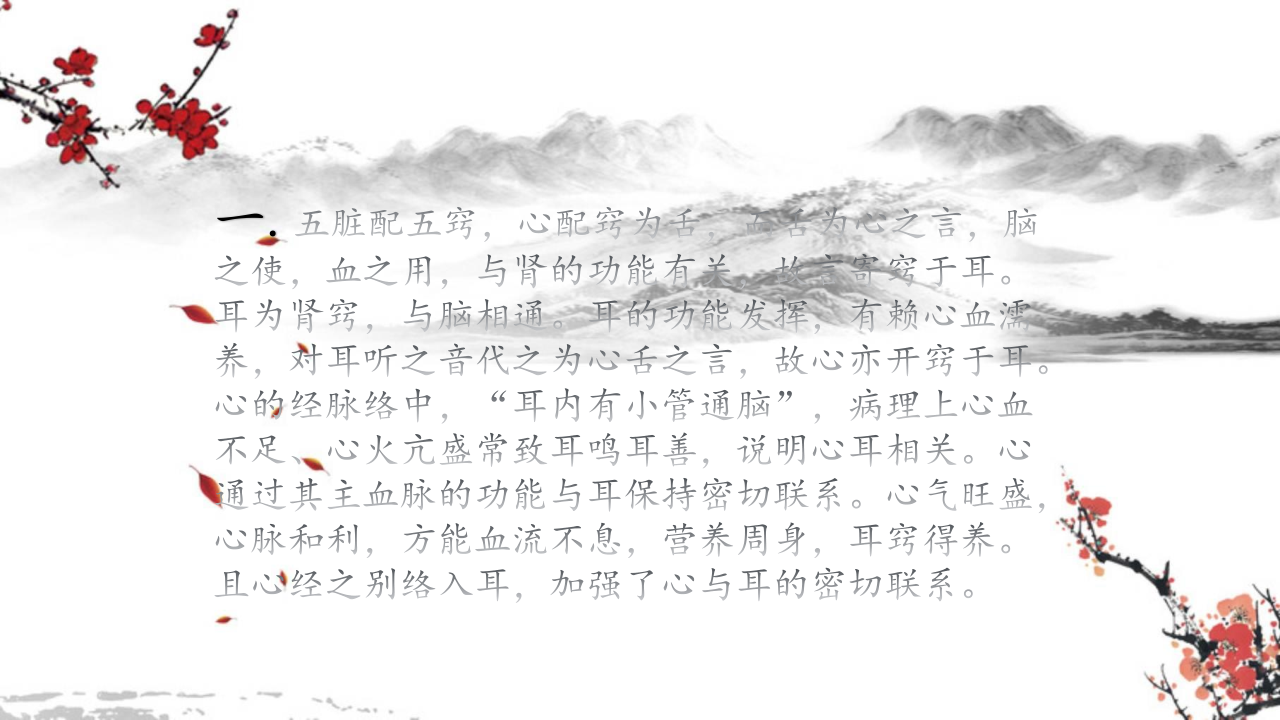 一. 五脏配五窍，心配窍为舌。而舌为心之言，脑
之使，血之用，与肾的功能有关，故言寄窍于耳。
耳为肾窍，与脑相通。耳的功能发挥，有赖心血濡
养，对耳听之音代之为心舌之言，故心亦开窍于耳。
心的经脉络中，“耳内有小管通脑”，病理上心血
不足、心火亢盛常致耳鸣耳善，说明心耳相关。心
通过其主血脉的功能与耳保持密切联系。心气旺盛，
心脉和利，方能血流不息，营养周身，耳窍得养。
且心经之别络入耳，加强了心与耳的密切联系。